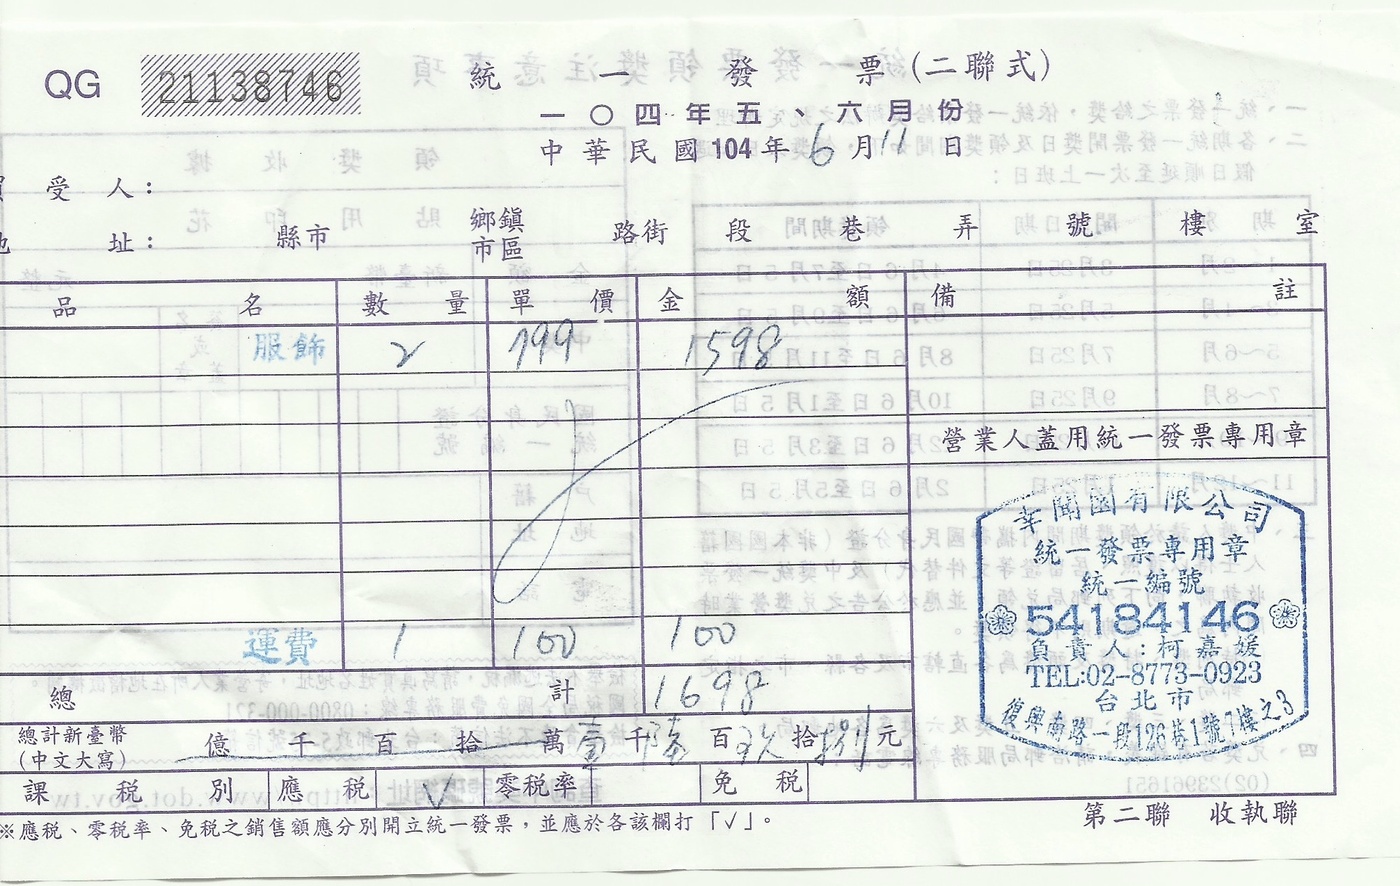 QG 21138746
統一發票(二聯式)
一〇四年五、六月份
中華民國104年6月11日
受人：
址： 縣市 鄉鎮市區 路街 段 巷 弄 號 樓 室
品名 數量 單價 金額 備註
服飾 2 799 1598
營業人蓋用統一發票專用章
運費 1 100 100
總計 1698
總計新臺幣(中文大寫) 億 千 百 拾 萬 壹 千 陸 百 玖 拾 捌 元
課稅別 應稅 V 零稅率 免稅
※應稅、零稅率、免稅之銷售額應分別開立統一發票，並應於各該欄打「✓」。
第二聯 收執聯
幸聞國有限公司
統一發票專用章
統一編號
54184146
負責人：柯嘉媛
TEL:02-8773-0923
台北市
復興南路一段126巷1號7樓之3